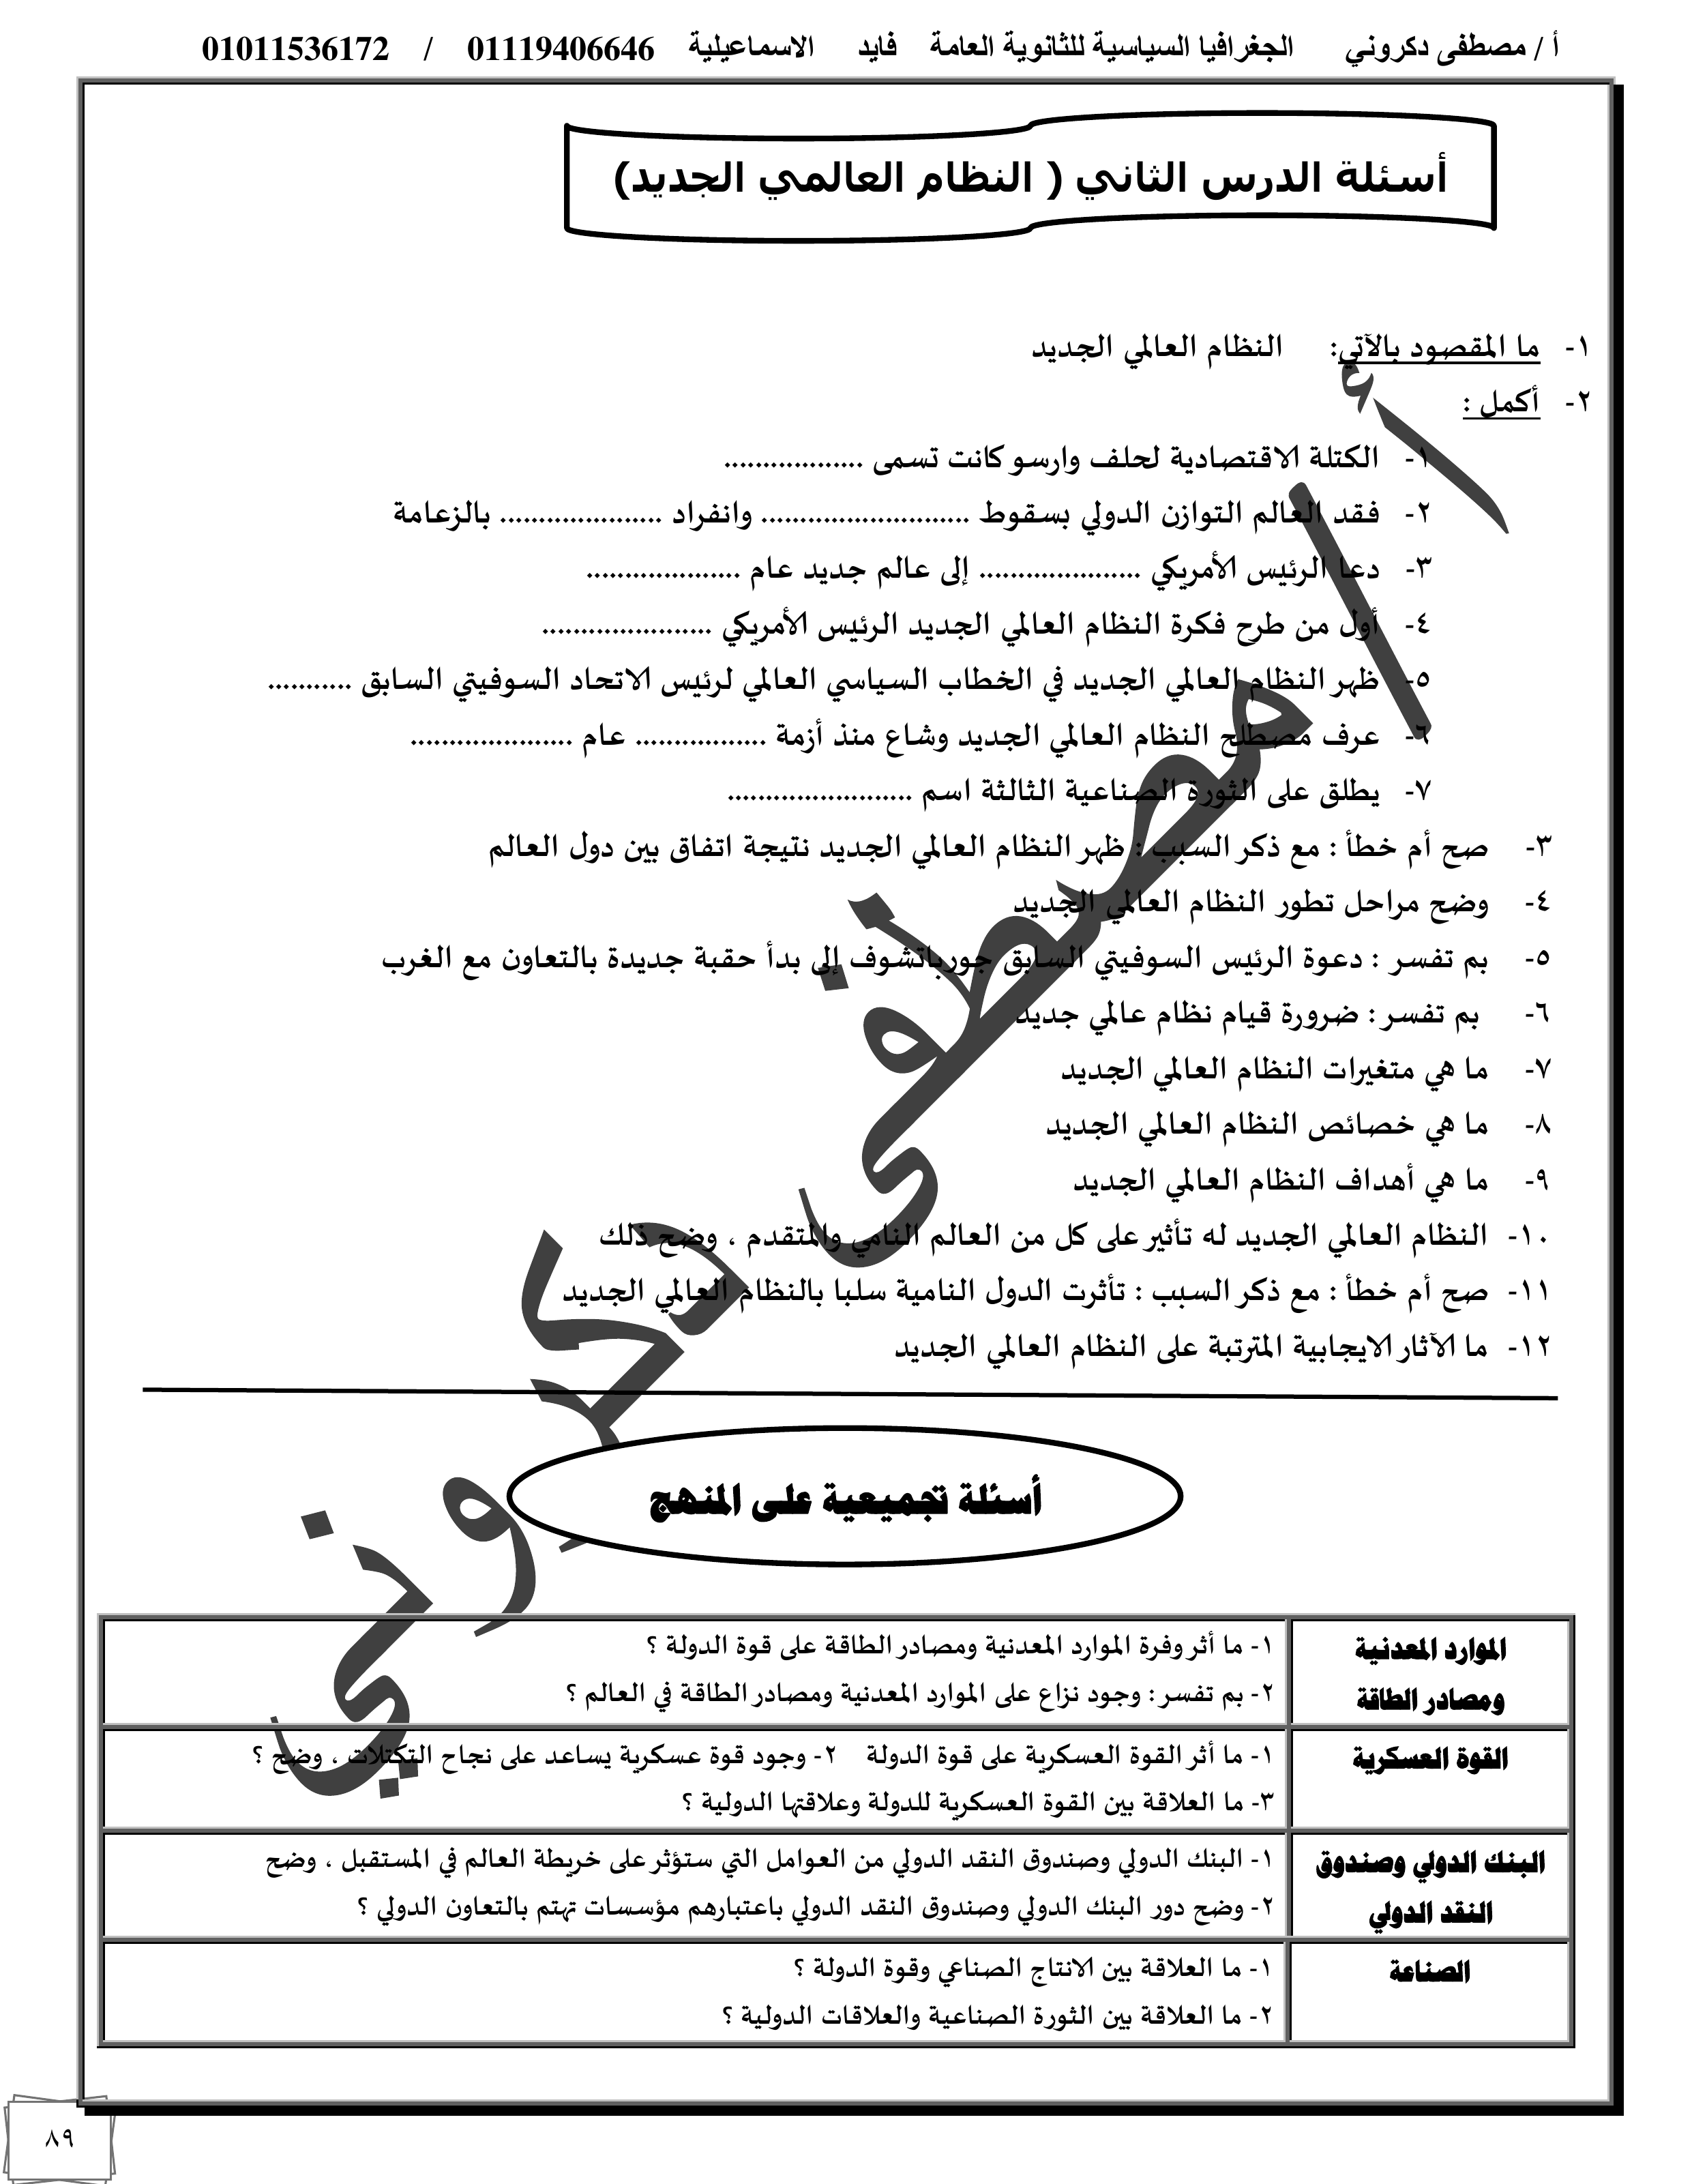 أ / مصطفى دكروني الجغرافيا السياسية للثانوية العامة فايد الاسماعيلية 01119406646 / 01011536172
أسئلة الدرس الثاني ( النظام العالمي الجديد)
١- ما المقصود بالآتي: النظام العالمي الجديد
٢- أكمل :
١- الكتلة الاقتصادية لحلف وارسو كانت تسمى ..................
٢- فقد العالم التوازن الدولي بسقوط ........................... وانفراد ..................... بالزعامة
٣- دعا الرئيس الأمريكي ..................... إلى عالم جديد عام ....................
٤- أول من طرح فكرة النظام العالمي الجديد الرئيس الأمريكي ......................
٥- ظهر النظام العالمي الجديد في الخطاب السياسي العالمي لرئيس الاتحاد السوفيتي السابق ...........
٦- عرف مصطلح النظام العالمي الجديد وشاع منذ أزمة ................. عام .....................
٧- يطلق على الثورة الصناعية الثالثة اسم ........................
٣- صح أم خطأ : مع ذكر السبب : ظهر النظام العالمي الجديد نتيجة اتفاق بين دول العالم
٤- وضح مراحل تطور النظام العالمي الجديد
٥- بم تفسر : دعوة الرئيس السوفيتي السابق جورباتشوف إلى بدأ حقبة جديدة بالتعاون مع الغرب
٦- بم تفسر : ضرورة قيام نظام عالمي جديد
٧- ما هي متغيرات النظام العالمي الجديد
٨- ما هي خصائص النظام العالمي الجديد
٩- ما هي أهداف النظام العالمي الجديد
١٠- النظام العالمي الجديد له تأثير على كل من العالم النامي والمتقدم ، وضح ذلك
١١- صح أم خطأ : مع ذكر السبب : تأثرت الدول النامية سلبا بالنظام العالمي الجديد
١٢- ما الآثار الايجابية المترتبة على النظام العالمي الجديد
أ / مصطفى دكروني
أسئلة تجميعية على المنهج
الموارد المعدنية
ومصادر الطاقة
١- ما أثر وفرة الموارد المعدنية ومصادر الطاقة على قوة الدولة ؟
٢- بم تفسر : وجود نزاع على الموارد المعدنية ومصادر الطاقة في العالم ؟
القوة العسكرية
١- ما أثر القوة العسكرية على قوة الدولة ٢- وجود قوة عسكرية يساعد على نجاح التكتلات ، وضح ؟
٣- ما العلاقة بين القوة العسكرية للدولة وعلاقتها الدولية ؟
البنك الدولي وصندوق
النقد الدولي
١- البنك الدولي وصندوق النقد الدولي من العوامل التي ستؤثر على خريطة العالم في المستقبل ، وضح
٢- وضح دور البنك الدولي وصندوق النقد الدولي باعتبارهم مؤسسات تهتم بالتعاون الدولي ؟
الصناعة
١- ما العلاقة بين الانتاج الصناعي وقوة الدولة ؟
٢- ما العلاقة بين الثورة الصناعية والعلاقات الدولية ؟
٨٩